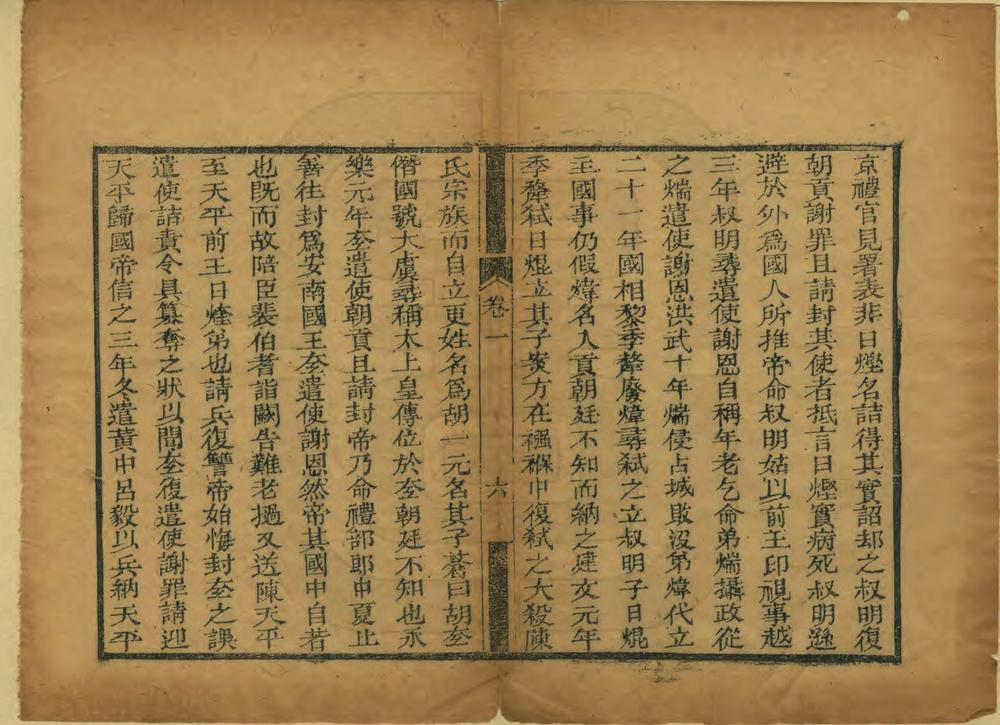 京禮官見署表非日熞名詰得其實詔却之叔明復
朝貢謝罪且請封其使者抵言日熞實病死叔明遜
避於外爲國人所推帝命叔明姑以前王印視事越
三年叔明尋遣使謝恩自稱年老乞命弟煓攝政從
之煓遣使謝恩洪武十年煓侵占城敗沒弟煒代立
二十一年國相黎季犛廢煒尋弑之立叔明子日焜
主國事仍假煒名入貢朝廷不知而納之建文元年
季犛弑日焜立其子𤇼方在襁褓中復弑之大殺陳
卷一
六
氏宗族而自立更姓名爲胡一元名其子蒼曰胡𡗨
僭國號大虞尋稱太上皇傳位於𡗨朝廷不知也永
樂元年𡗨遣使朝貢且請封帝乃命禮部郎中夏止
善往封爲安南國王𡗨遣使謝恩然帝其國中自若
也旣而故陪臣裴伯耆詣闕告難老撾又送陳天平
至天平前王日烇弟也請兵復讐帝始悔封𡗨之誤
遣使詰責令具篡奪之狀以聞𡗨復遣使謝罪請迎
天平歸國帝信之三年冬遣黃中呂毅以兵納天平